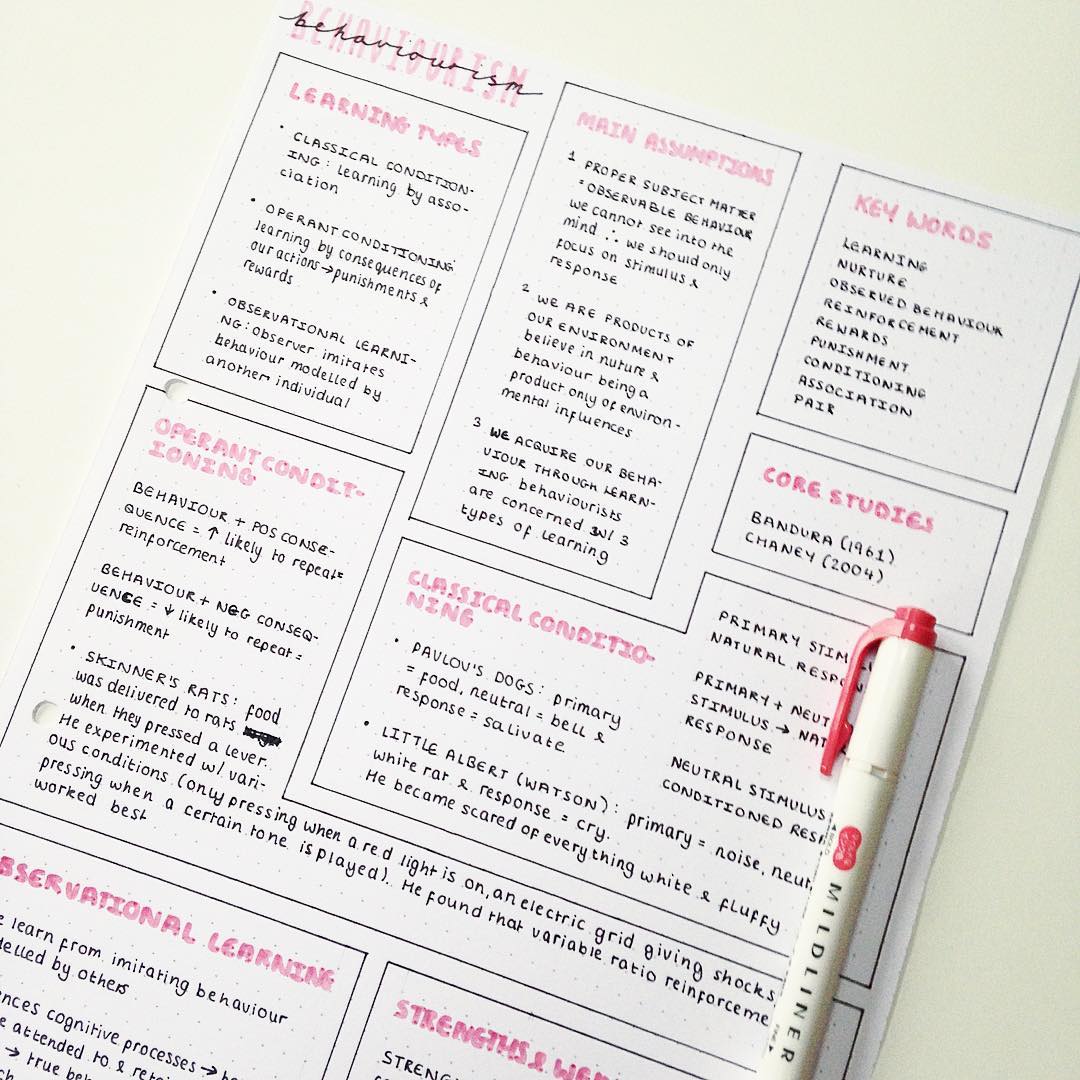 BEHAVIOURISM
behaviourism
LEARNING TYPES
• CLASSICAL CONDITION-
ING: learning by asso-
ciation
• OPERANT CONDITIONING:
learning by consequences of
our actions → punishments &
rewards
• OBSERVATIONAL LEARNI-
NG: observer imitates
behaviour modelled by
another individual
MAIN ASSUMPTIONS
1 PROPER SUBJECT MATTER
= OBSERVABLE BEHAVIOUR
we cannot see into the
mind ∴ we should only
focus on stimulus &
response
2 WE ARE PRODUCTS OF
OUR ENVIRONMENT
believe in nuture &
behaviour being a
product only of environ-
mental influences
3 WE ACQUIRE OUR BEHA-
VIOUR THROUGH LEARN-
ING behaviourists
are concerned w/ 3
types of learning
KEY WORDS
LEARNING
NURTURE
OBSERVED BEHAVIOUR
REINFORCEMENT
REWARDS
PUNISHMENT
CONDITIONING
ASSOCIATION
PAIR
CORE STUDIES
BANDURA (1961)
CHANEY (2004)
OPERANT CONDIT-
IONING
BEHAVIOUR + POS CONSE-
QUENCE = ↑ likely to repeat =
reinforcement
BEHAVIOUR + NEG CONSEQ-
UENCE = ↓ likely to repeat =
punishment
• SKINNER'S RATS: food
was delivered to rats
when they pressed a lever.
He experimented w/ vari-
ous conditions (only pressing when a red light is on, an electric grid giving shocks,
pressing when a certain tone is played). He found that variable ratio reinforceme
worked best
CLASSICAL CONDITIO-
NING
• PAVLOV'S DOGS: primary
= food, neutral = bell &
response = salivate
• LITTLE ALBERT (WATSON): primary = noise, neut
white rat & response = cry.
He became scared of everything white & fluffy
PRIMARY STIM
NATURAL RESPON
PRIMARY + NEUT
STIMULUS → NAT
RESPONSE
NEUTRAL STIMULUS
CONDITIONED RESP
BSERVATIONAL LEARNING
e learn from imitating behaviour
delled by others
ences cognitive processes →
e attended to &
→ true
STRENGTHS &
STRENG
MILDLINER